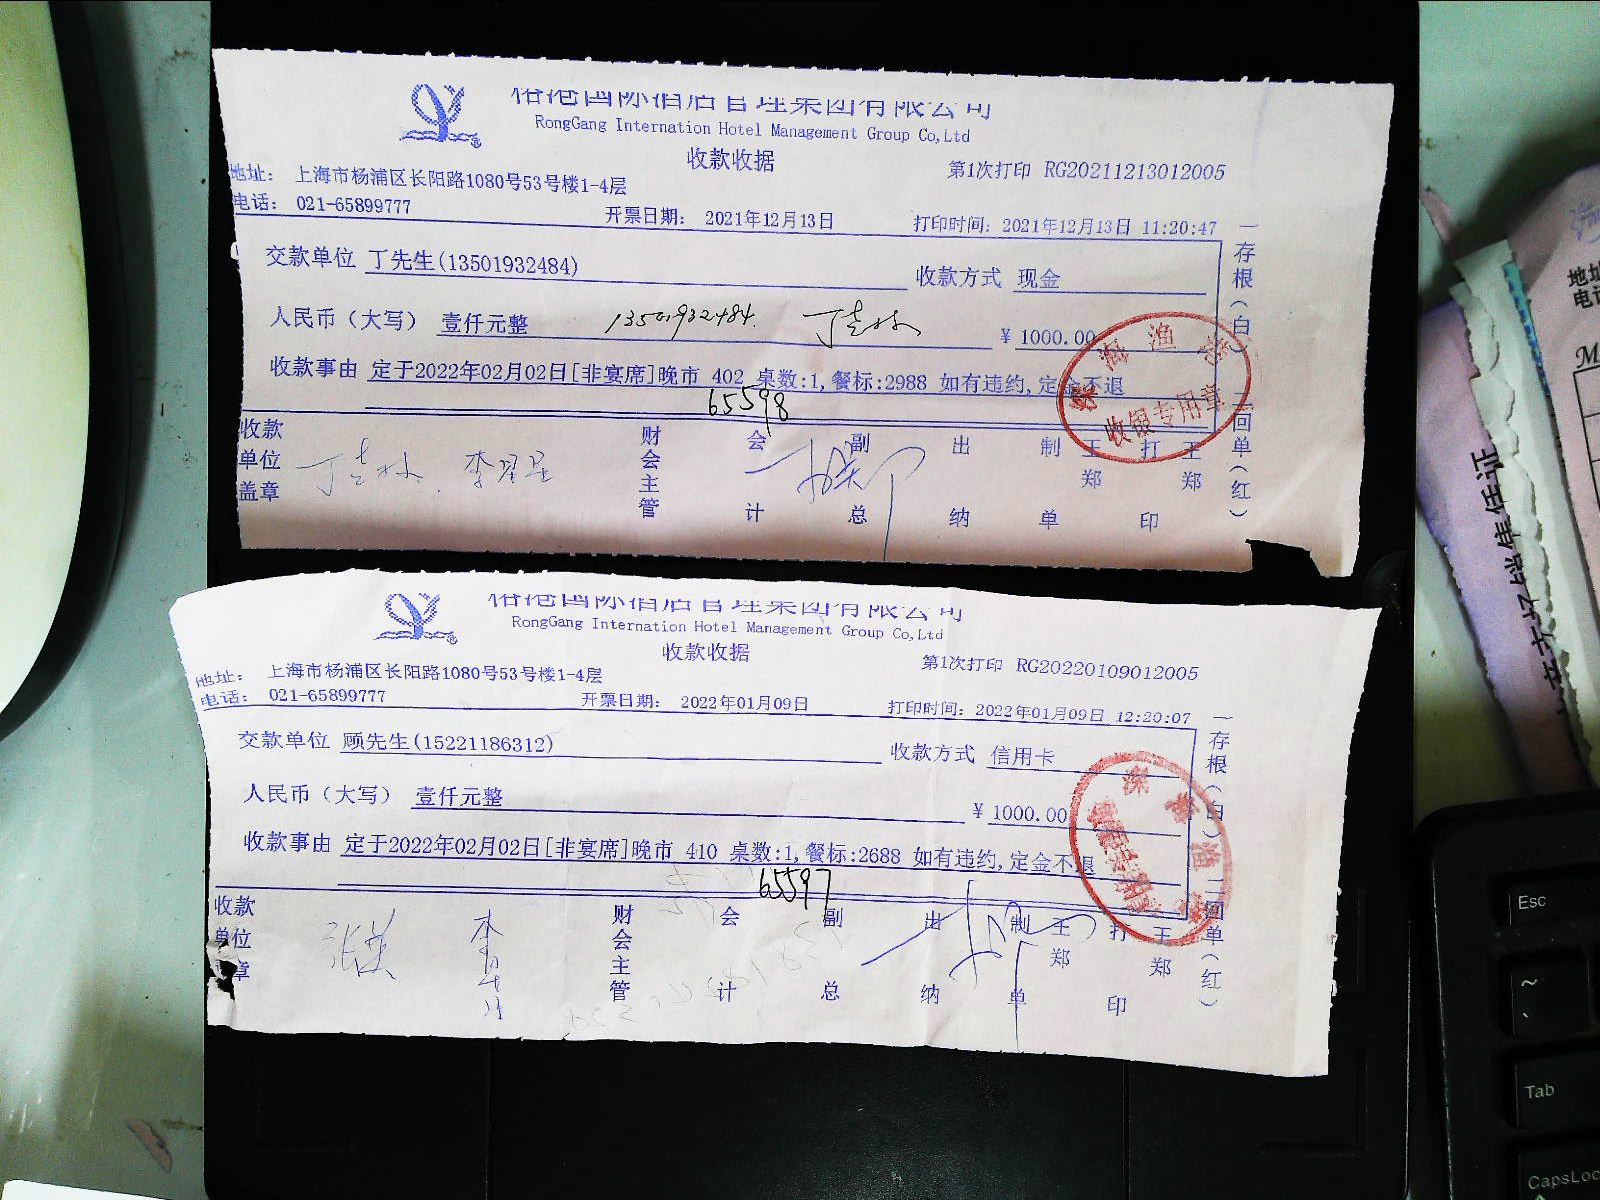 国际酒店管理集团有限公司
RongGang Internation Hotel Management Group Co,Ltd
收款收据
第1次打印 RG20211213012005
地址： 上海市杨浦区长阳路1080号53号楼1-4层
电话： 021-65899777
开票日期： 2021年12月13日
打印时间：2021年12月13日 11:20:47
交款单位 丁先生(13501932484)
收款方式 现金
人民币（大写） 壹仟元整 13501932484. ¥ 1000.00
收款事由 定于2022年02月02日[非宴席]晚市 402 桌数:1,餐标:2988 如有违约,定金不退
65598
收款单位盖章
财会主管
会计
副总
出纳
制单
王郑
打印
王郑
一存根（白）
二回单（红）
收银专用章
国际酒店管理集团有限公司
RongGang Internation Hotel Management Group Co,Ltd
收款收据
第1次打印 RG20220109012005
地址： 上海市杨浦区长阳路1080号53号楼1-4层
电话： 021-65899777
开票日期： 2022年01月09日
打印时间：2022年01月09日 12:20:07
交款单位 顾先生(15221186312)
收款方式 信用卡
人民币（大写） 壹仟元整
¥ 1000.00
收款事由 定于2022年02月02日[非宴席]晚市 410 桌数:1,餐标:2688 如有违约,定金不退
65597
收款单位章
财会主管
会计
副总
出纳
制单
王郑
打印
王郑
一存根（白）
二回单（红）
Esc
~
Tab
CapsLoc